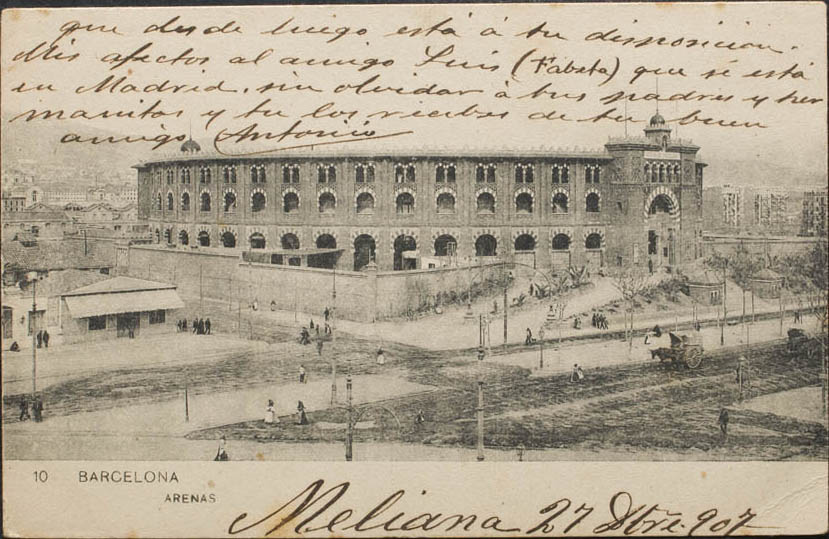 que desde luego está á tu disposicion.
Mis afectos al amigo Luis (Fabeta) que sé está
en Madrid, sin olvidar á tus padres y her
manitos y tu los recibes de tu buen
amigo Antonio
10 BARCELONA
ARENAS
Meliana 27 Dbre. 907